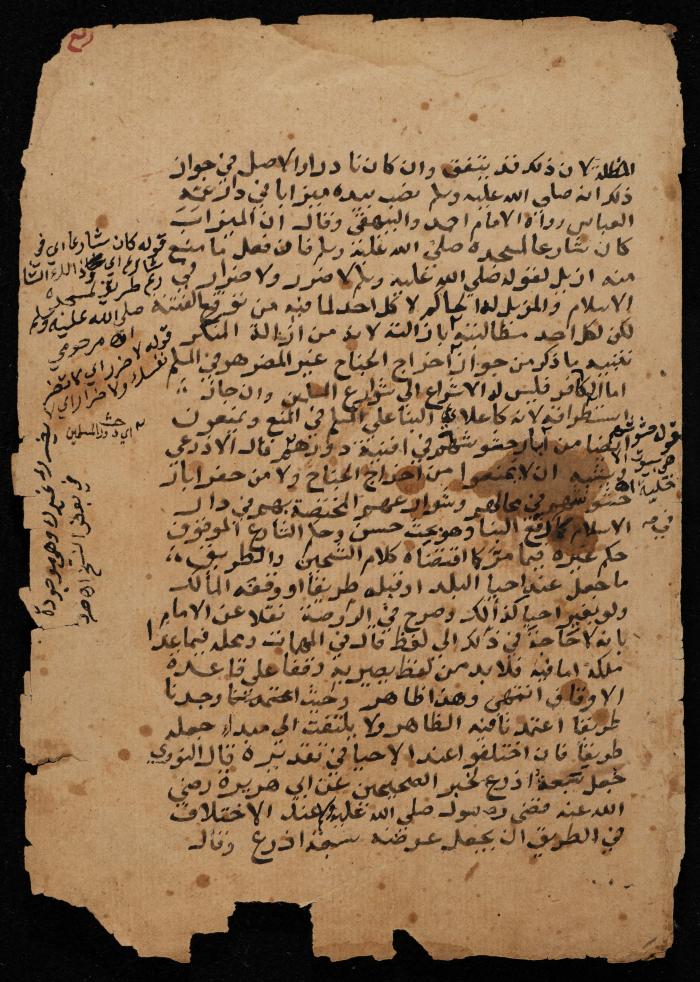 المظلة لان ذلك قد يتفق وان كان نادرا والاصل في جواز
ذلك انه صلى الله عليه وسلم نصب بيده ميزابا في دار عمه
العباس رواه الامام احمد والبيهقي وقال ان الميزاب
كان شارعا لمسجده صلى الله عليه وسلم فان فعل ما منع
منه ازيل لقوله صلى الله عليه وسلم لا ضرر ولا ضرار في
الاسلام والمزيل له الحاكم لا كل احد لما فيه من توقع الفتنة
لكن لكل احد مطالبته بازالته لانه من ازالة المنكر
تنبيه ما ذكر من جواز اخراج الجناح غير المضر هو في المسلم
اما الكافر فليس له الاشراع الى شوارع المسلمين وان جاز
استطراقه لانه كاعلاء البنا على المسلم في المنع ويمنعون
ايضا من آبار حشوشهم في افنية دورهم قال الاذرعي
ويشبه ان لا يمنعوا من اخراج الجناح ولا من حفر ابار
حشوشهم في محالهم وشوارعهم المختصة بهم في دار
الاسلام كما في رفع البنا وهو بحث حسن وحكم الشارع الموقوف
حكم غيره فيما مر كما اقتضاه كلام الشيخين والطريق
ما جعل عند احيا البلد او قبله طريقا او وقفه المالك
ولو بغير احيا كذلك وصرح في الروضة نقلا عن الامام
بانه لا حاجة في ذلك الى لفظ قال في المهمات ومحله فيما عدا
ملكه اما فيه فلا بد من لفظ يصير به وقفا على قاعدة
الاوقاف انتهى وهذا ظاهر وحيث وجدنا
طريقا اعتمدنا فيه الظاهر ولا يلتفت الى مبدا جعله
طريقا فان اختلفوا عند الاحيا في تقديره قال النووي
جعل سبعة اذرع لخبر الصحيحين عن ابي هريرة رضي
الله عنه قضى رسول صلى الله عليه عند الاختلاف
في الطريق ان يجعل عرضه سبعة اذرع وقال
قوله كان شارعا اي في
طريق لمسجده
صلى الله عليه وسلم
اه مرحومي
قوله لا ضرر اي لا تضر
نفسك ولا ضرار اي
اي دور المسلمين
غيرك وهي موجودة
في بعض النسخ اه
قوله حشوشهم